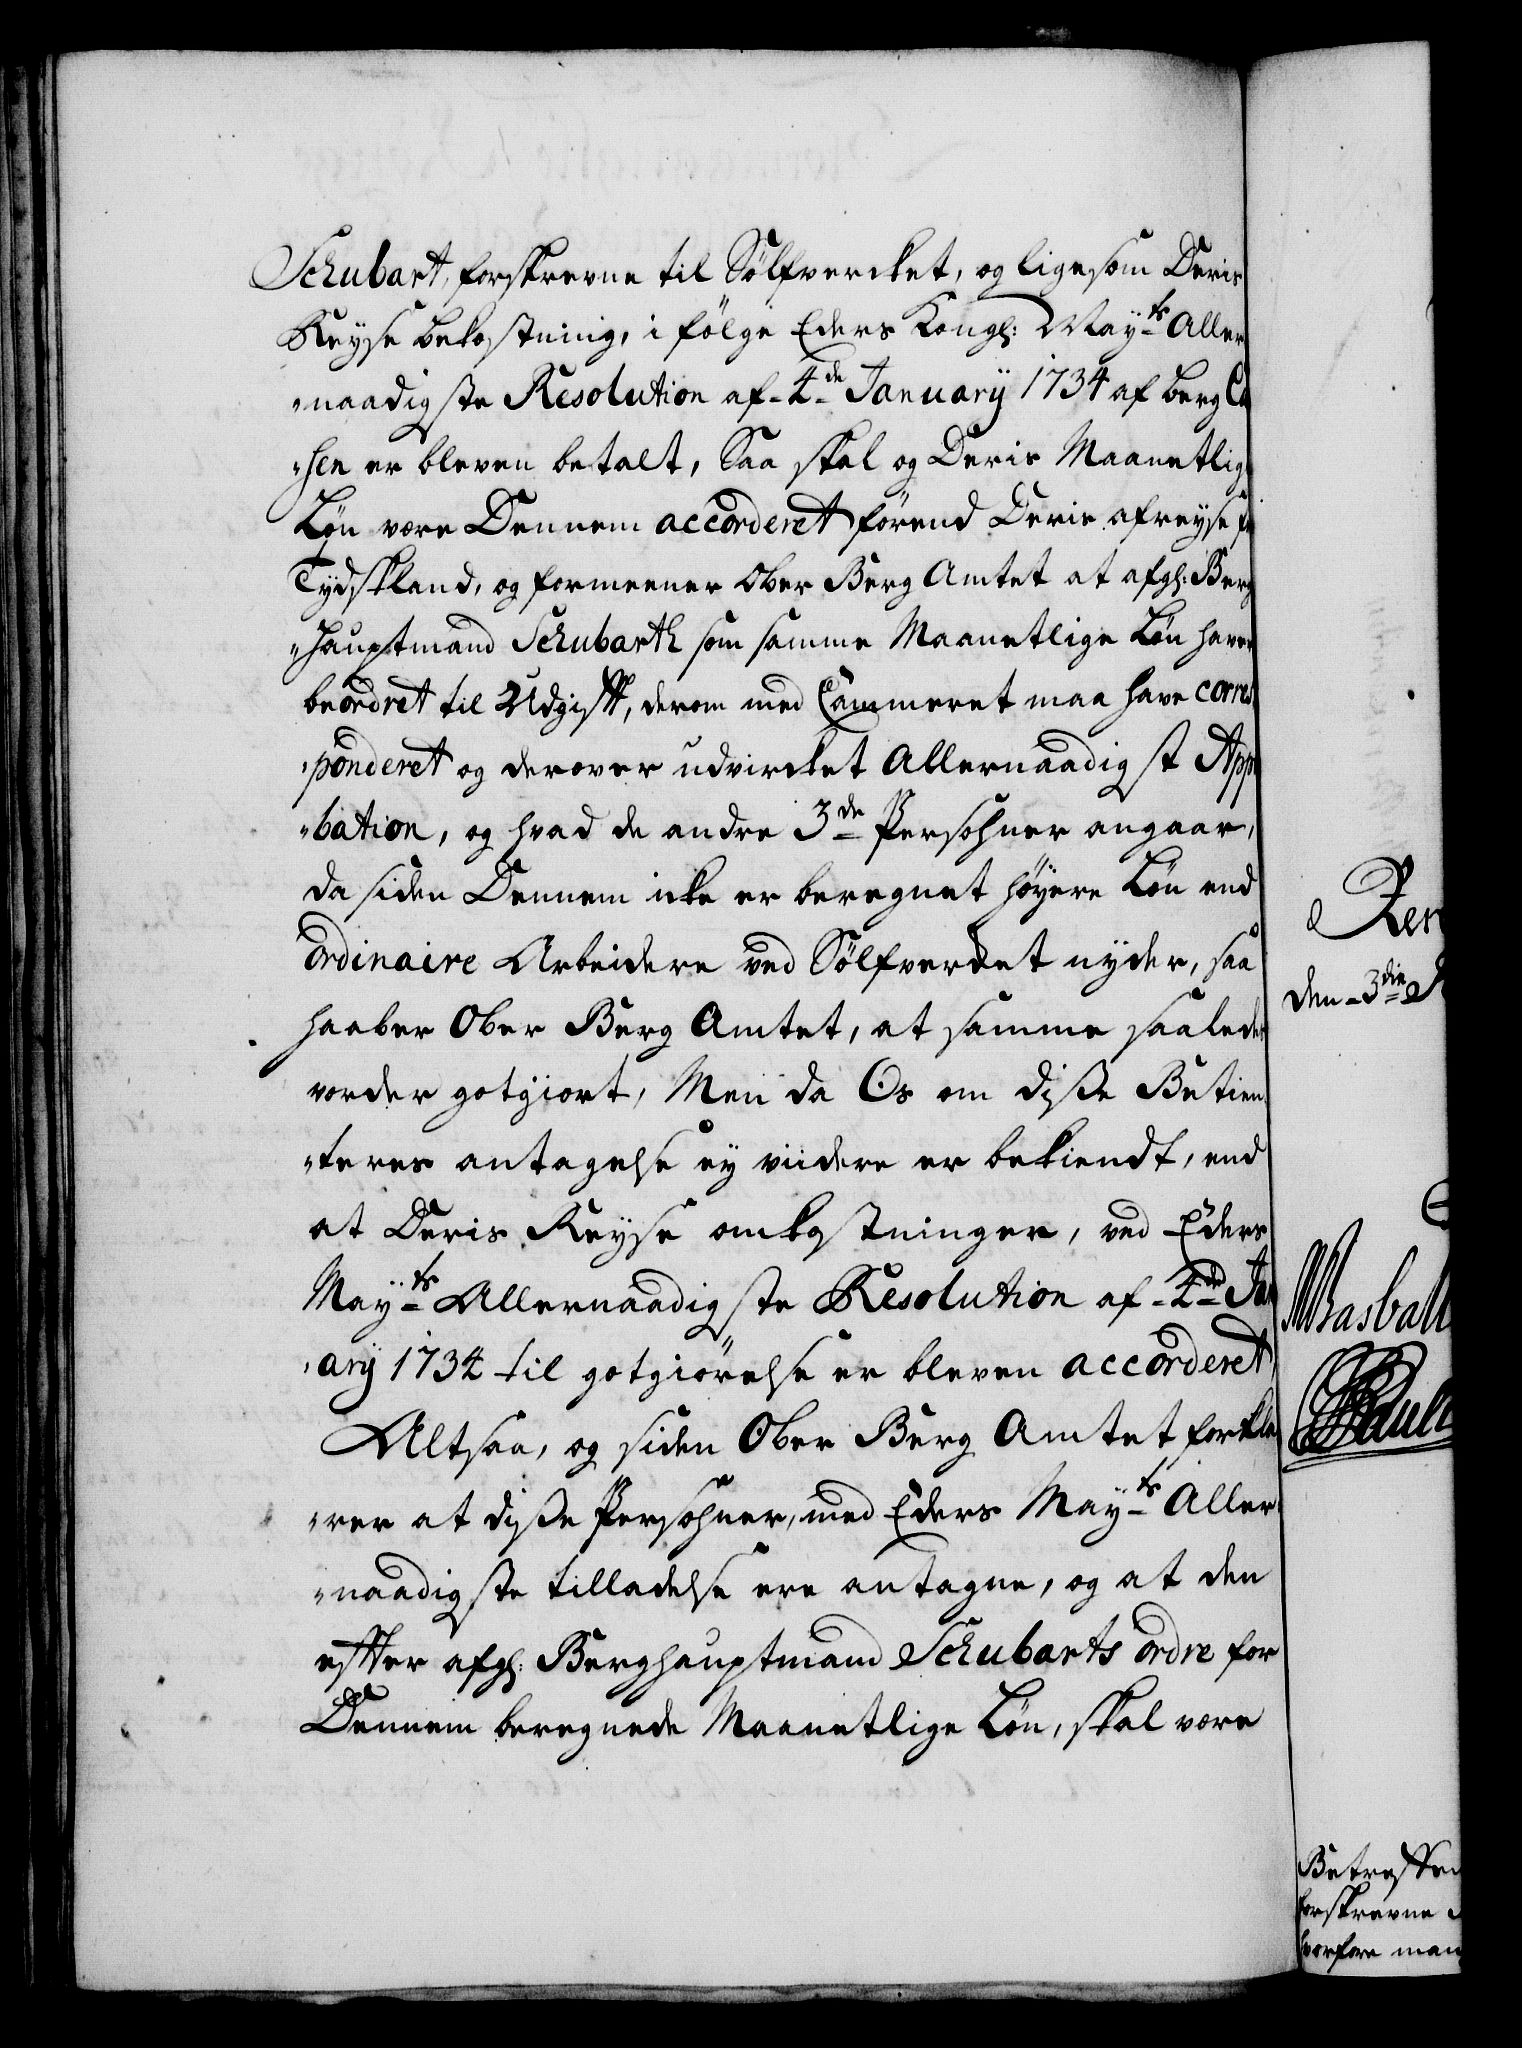 Schubart, forskrevne til Sølfvercket, og ligesom Deris
Reyse bekostning, i følge Eders Kongl: May:ts Aller
„naadigste Resolution af 4de January 1734 af berg Ca
„hen er bleven betalt, Saa skal og Deris Maanetlige
Løn være Dennem accorderet førend Deris afreyse fr
Tydskland, og formeener Ober Berg Amtet at afgl: Berg
„hauptmand Schubarth som samme Maanetlige Løn haver
beordret til Udgift, derom med Cammeret maa have corres
„ponderet og derover udvircket Allernaadigst App
„bation, og hvad de andre 3de Persohner angaar,
da siden Dennem icke er beregnet høyere Løn end
ordinaire Arbeidere ved Sølfverket nyder, saa
haaber Ober Berg Amtet, at samme saaledes
vorder gotgiort, Men da Os om disse Betien
„teres antagelse ey viidere er bekiendt, end
at Deris Reyse omkostninger, ved Eders
May:ts Allernaadigste Resolution af 4de Jan
„ary 1734 til gotgiørelse er bleven accorderet,
Altsaa, og siden Ober Berg Amtet forkla
„rer at disse Persohner, med Eders May:ts Aller
„naadigste tilladelse ere antagne, og at den
efter afgl: Berghauptmand Schubarts ordre for
Dennem beregnede Maanetlige Løn, skal være
Ren
den 3die
Betreffen
forskrevne
hvorfore man